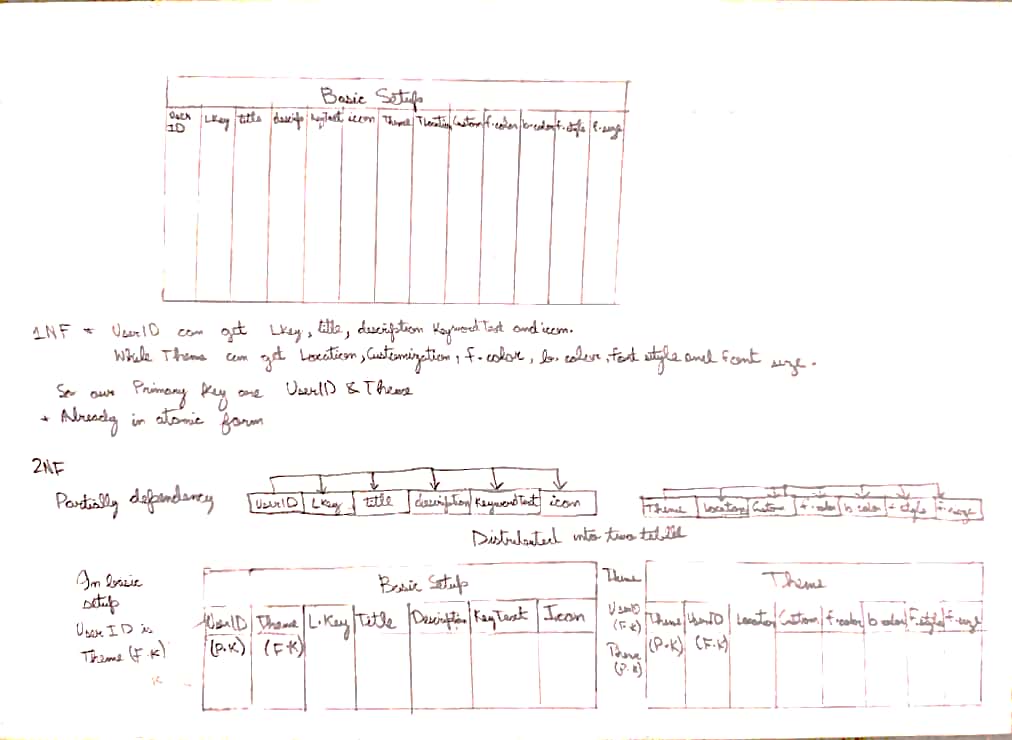 Basic Setup
User ID LKey title descrip KeyText icon Theme TLocation Custom f-color b-color f-style f-size
1NF * UserID can get Lkey, title, description KeywordText and icon.
While Theme can get Location, Customization, f-color, b. color, font style and font size.
So our Primary Key are UserID & Theme
* Already in atomic form
2NF
Partially dependency
UserID LKey title description KeywordText icon
Theme Location Custom f-color b color f style f-size
Distributed into two table
In basic
setup
User ID is
Theme (F.K)
Basic Setup
UserID Theme L.Key Title Description KeyText Icon
(P.K) (F.K)
Theme
UserID
(F.K)
Theme
(P.K)
Theme
Theme UserID Location Custom f-color b color F.style f-size
(P.K) (F.K)